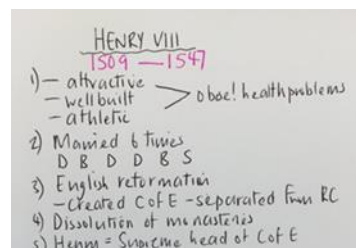 HENRY VIII
1509 — 1547
1) — attractive
— well built
— athletic
> obese! health problems
2) Married 6 times
D B D D B S
3) English reformation
- Created C of E - separated from RC
4) Dissolution of monasteries
5) Henry = Supreme head of C of E